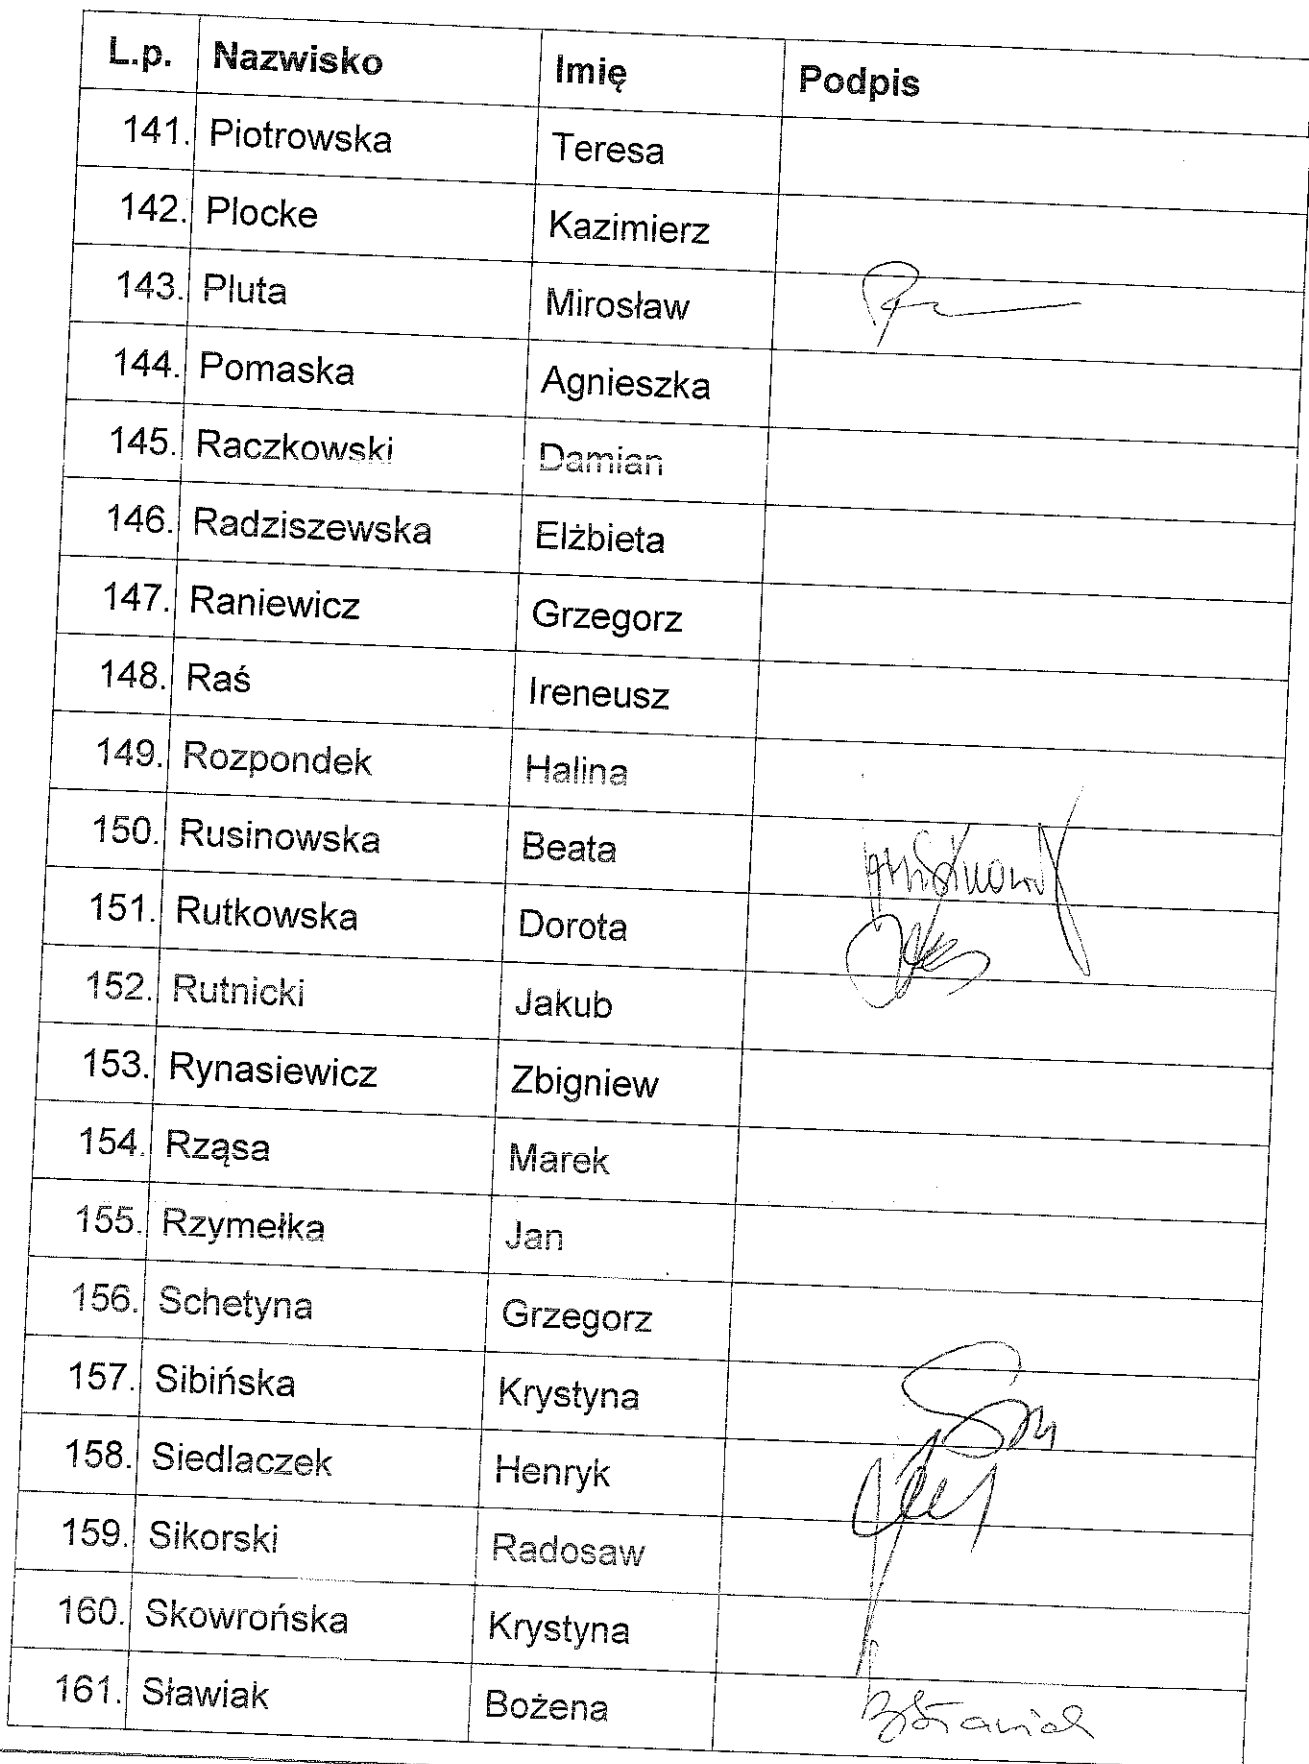 L.p. Nazwisko Imię Podpis
141. Piotrowska Teresa
142. Plocke Kazimierz
143. Pluta Mirosław
144. Pomaska Agnieszka
145. Raczkowski Damian
146. Radziszewska Elżbieta
147. Raniewicz Grzegorz
148. Raś Ireneusz
149. Rozpondek Halina
150. Rusinowska Beata
151. Rutkowska Dorota
152. Rutnicki Jakub
153. Rynasiewicz Zbigniew
154. Rząsa Marek
155. Rzymełka Jan
156. Schetyna Grzegorz
157. Sibińska Krystyna
158. Siedlaczek Henryk
159. Sikorski Radosaw
160. Skowrońska Krystyna
161. Sławiak Bożena